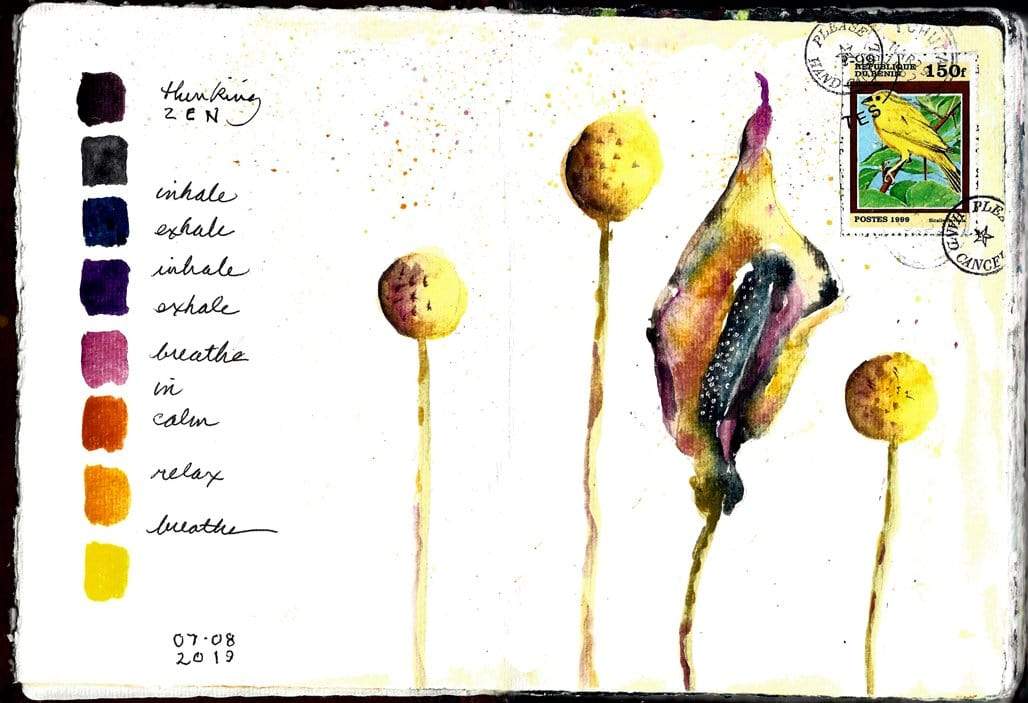 thinking
ZEN
inhale
exhale
inhale
exhale
breathe
in
calm
relax
breathe
07·08
2019
PLEASE
HAND
RÉPUBLIQUE
DU BENIN
150f
TES
POSTES 1999
PLEA
CANCE